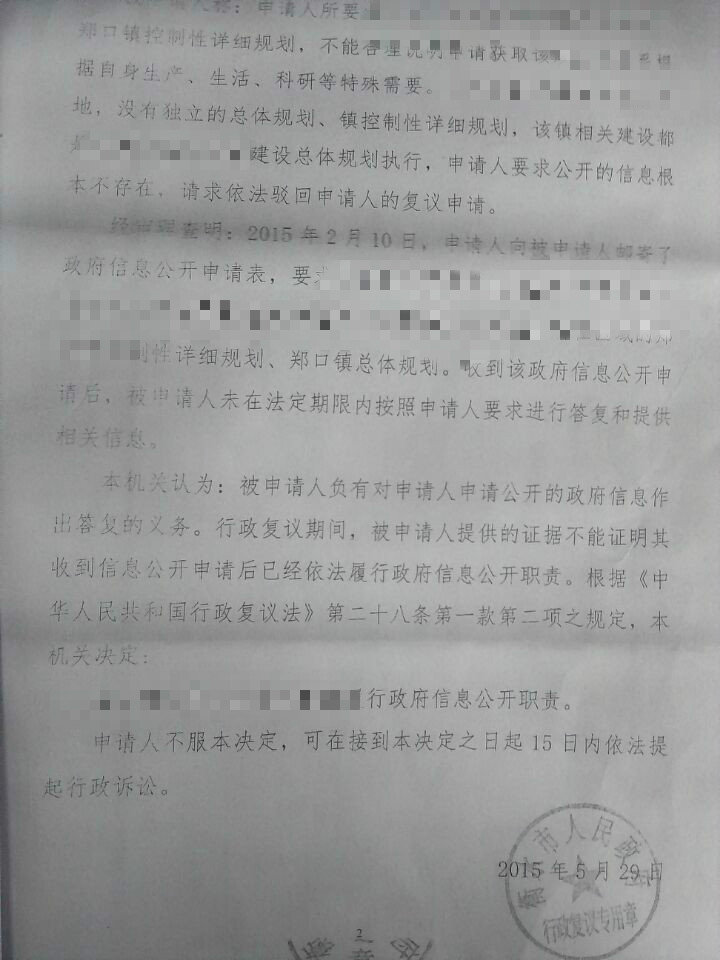 申请人所要
郑口镇控制性详细规划，不能合理说明申请获取该
据自身生产、生活、科研等特殊需要。
地，没有独立的总体规划、镇控制性详细规划，该镇相关建设都
建设总体规划执行，申请人要求公开的信息根
本不存在，请求依法驳回申请人的复议申请。
经审理查明：2015年2月10日，申请人向被申请人邮寄了
政府信息公开申请表，要
制性详细规划、郑口镇总体规划。收到该政府信息公开申
请后，被申请人未在法定期限内按照申请人要求进行答复和提供
相关信息。
本机关认为：被申请人负有对申请人申请公开的政府信息作
出答复的义务。行政复议期间，被申请人提供的证据不能证明其
收到信息公开申请后已经依法履行政府信息公开职责。根据《中
华人民共和国行政复议法》第二十八条第一款第二项之规定，本
机关决定：
行政府信息公开职责。
申请人不服本决定，可在接到本决定之日起15日内依法提
起行政诉讼。
市人民政府
2015年5月29日
行政复议专用章
2